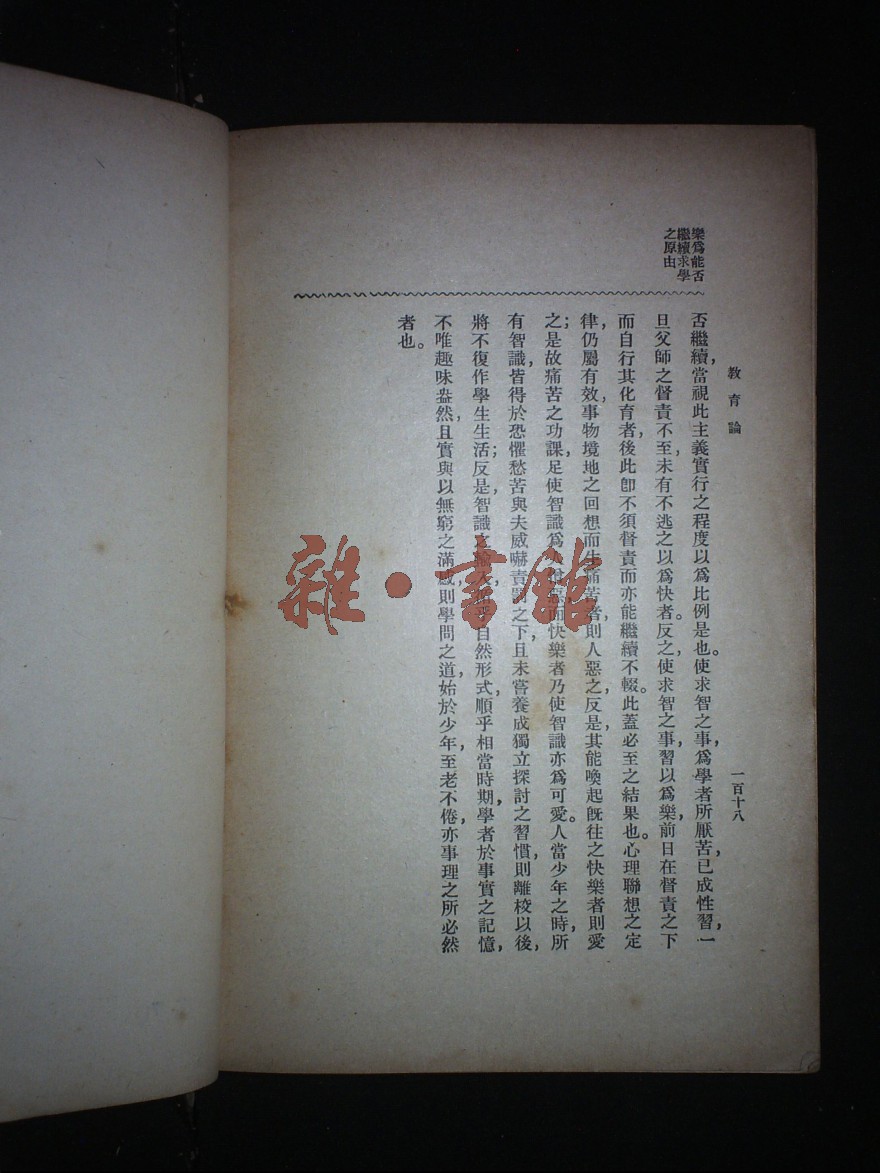 教育論
一百十八
樂爲能否
繼續求學
之原由
否繼續，當視此主義實行之程度以爲比例是也。使求智之事，爲學者所厭苦，已成性習，一
旦父師之督責不至，未有不逃之以爲快者。反之，使求智之事，習以爲樂，前日在督責之下
而自行其化育者，後此卽不須督責而亦能繼續不輟。此蓋必至之結果也。心理聯想之定
律，仍屬有效，事物境地之回想而生痛苦者，則人惡之，反是，其能喚起旣往之快樂者則愛
之；是故痛苦之功課，足使智識爲可惡，而快樂者乃使智識亦爲可愛。人當少年之時，所
有智識，皆得於恐懼愁苦與夫威嚇責罰之下，且未嘗養成獨立探討之習慣，則離校以後，
將不復作學生生活；反是，智識之輸入，以自然形式，順乎相當時期，學者於事實之記憶，
不唯趣味盎然，且實與以無窮之滿感，則學問之道，始於少年，至老不倦，亦事理之所必然
者也。
雜·書館